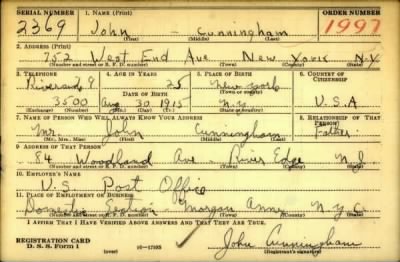 SERIAL NUMBER 1. NAME (Print) ORDER NUMBER
2369 John - Cunningham 1997
(First) (Middle) (Last)
2. ADDRESS (Print)
752 West End Ave New York N.Y
(Number and street or R. F. D. number) (Town) (County) (State)
3. TELEPHONE 4. AGE IN YEARS 5. PLACE OF BIRTH 6. COUNTRY OF CITIZENSHIP
Riverside 9 25 New York
3500 Aug 30 1915 N.Y. U.S.A
(Exchange) (Number) (Mo.) (Day) (Yr.) (State or country)
7. NAME OF PERSON WHO WILL ALWAYS KNOW YOUR ADDRESS 8. RELATIONSHIP OF THAT PERSON
Mr. John Cunningham Father
(Mr., Mrs., Miss) (First) (Middle) (Last)
9. ADDRESS OF THAT PERSON
84 Woodland Ave - River Edge N.J.
(Number and street or R. F. D. number) (Town) (County) (State)
10. EMPLOYER'S NAME
U.S. Post Office
11. PLACE OF EMPLOYMENT OR BUSINESS
Domestic Section - Morgan Annex N.Y.C.
(Number and street or R. F. D. number) (Town) (County) (State)
I AFFIRM THAT I HAVE VERIFIED ABOVE ANSWERS AND THAT THEY ARE TRUE.
REGISTRATION CARD
D. S. S. Form 1 16-17105 John Cunningham
(Registrant's signature)